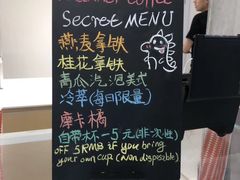 COFFEE
Secret MENU
燕麦拿铁
桂花拿铁
青瓜汽泡美式
冷萃(每日限量)
摩卡橘
自带杯-5元(非一次性)
OFF 5RMB if you bring
your own cup (non disposable)